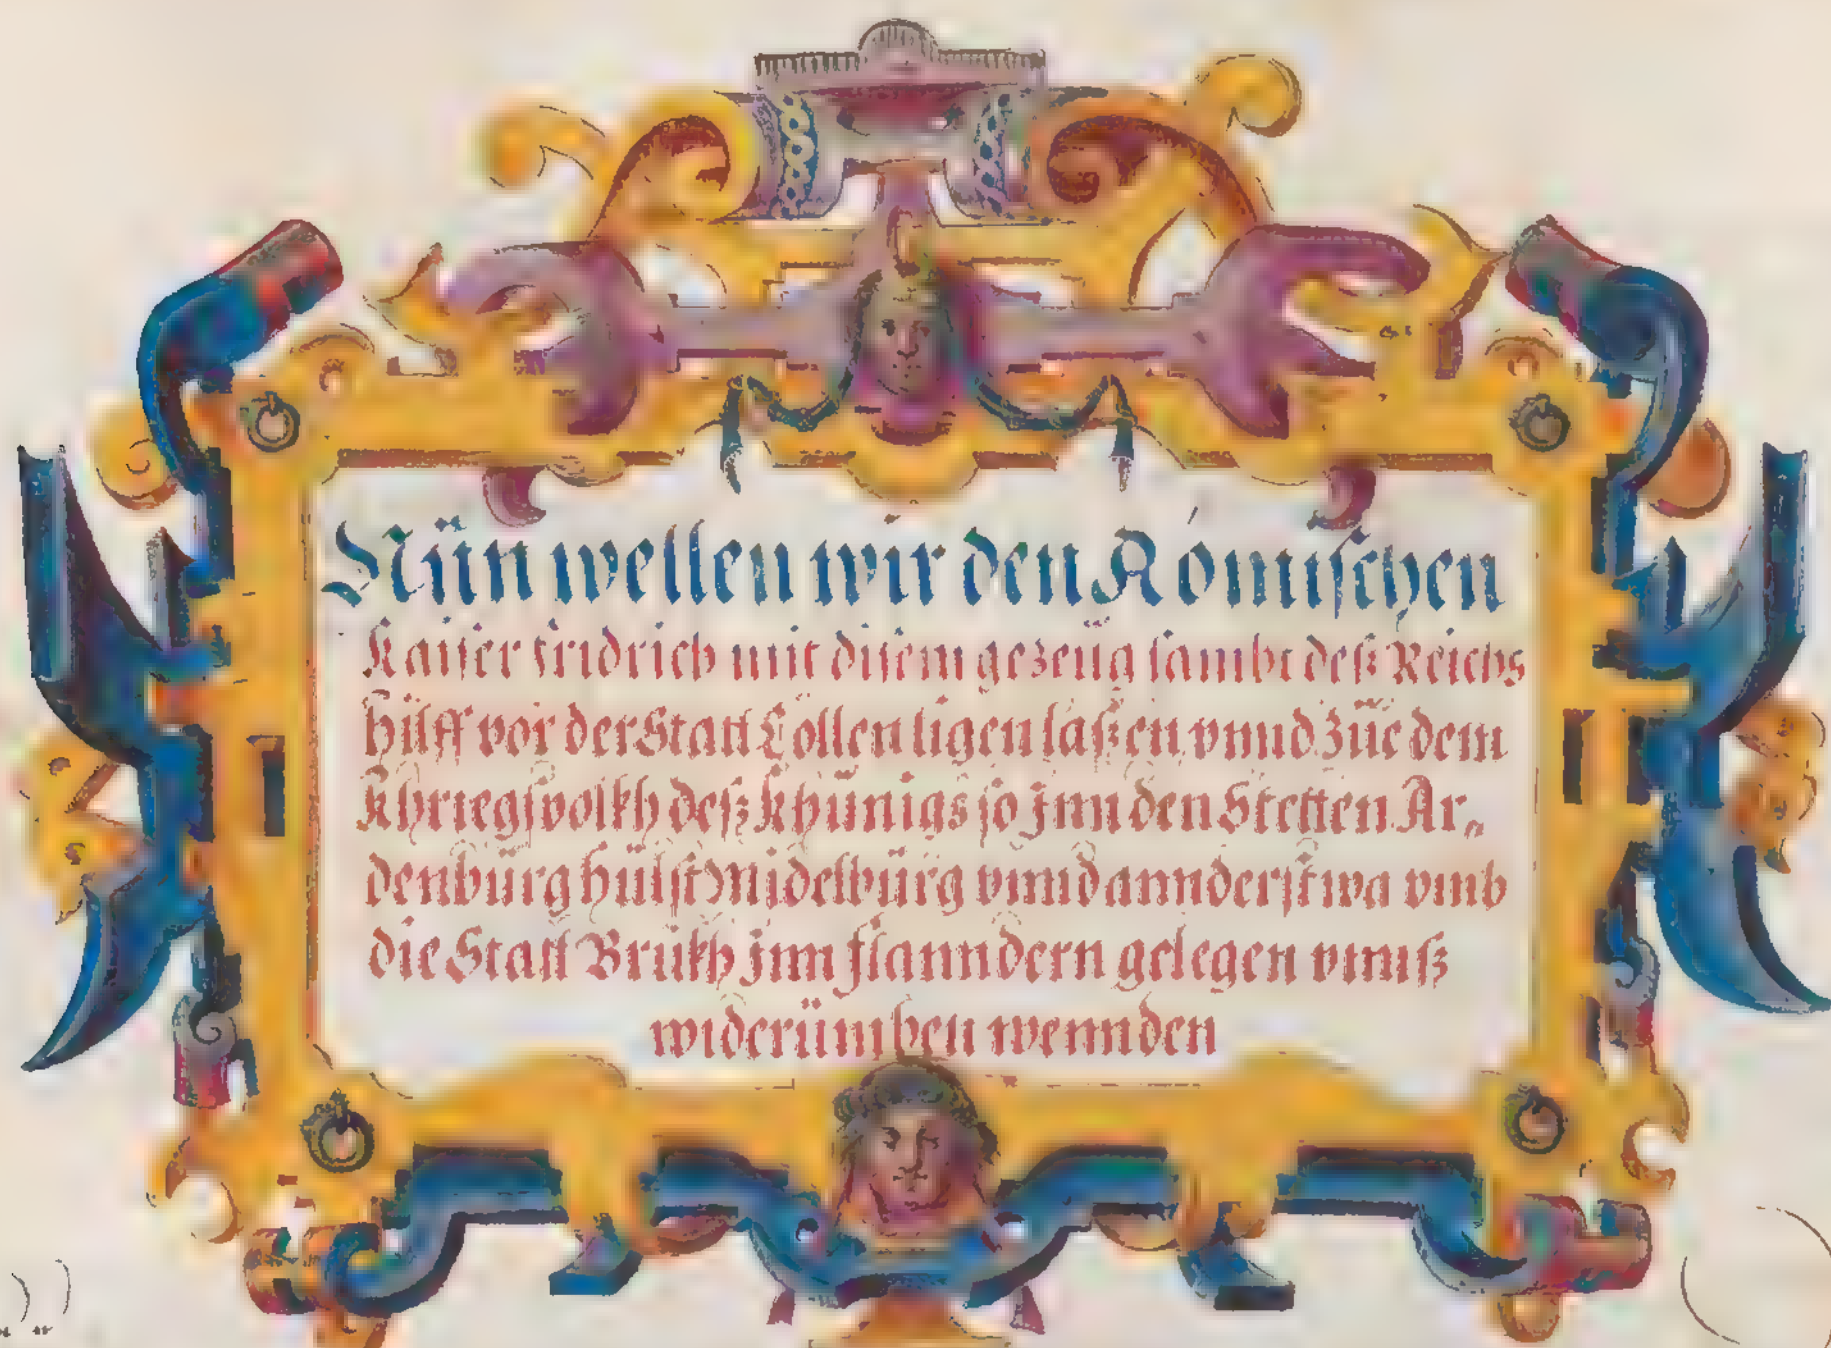 Nün wellen wir den Römischen
Kaiser fridrich mit disem gezeüg sambt deß Reichs
hilff vor der Statt Cöllen ligen laßen vnnd Züe dem
Khriegsvolkh deß Khünigs so Jnn den Stetten Ar„
denbürg hülst Midelbürg vnnd annderstwa vmb
die Statt Brükh jnn flanndern gelegen vnnß
widerümben wennden